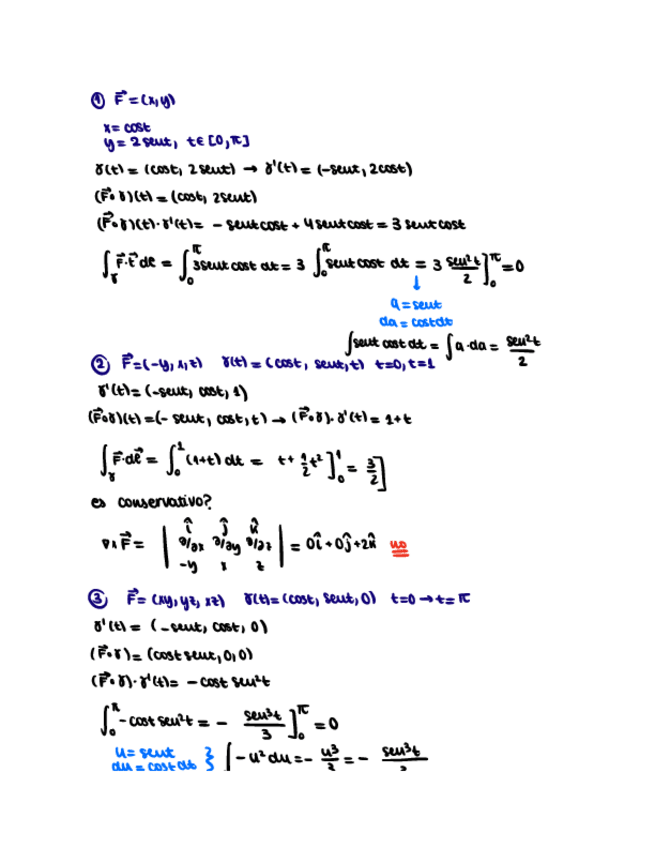 ① F⃗ = (x,y)
x = cost
y = 2 sent, t ∈ [0,π]
γ(t) = (cost, 2 sent) → γ'(t) = (-sent, 2cost)
(F⃗∘γ)(t) = (cost, 2sent)
(F⃗∘γ)(t)·γ'(t) = - sent cost + 4 sent cost = 3 sent cost
∫_γ F⃗·t⃗ dℓ = ∫₀^π 3 sent cost dt = 3 ∫₀^π sent cost dt = 3 sen²t/2 ]₀^π = 0
↓
a = sent
da = cost dt
∫ sent cost dt = ∫ a·da = sen²t/2
② F⃗ = (-y, x, z) γ(t) = (cost, sent, t) t=0, t=1
γ'(t) = (-sent, cost, 1)
(F⃗∘γ)(t) = (- sent, cost, t) → (F⃗∘γ)·γ'(t) = 1+t
∫_γ F⃗·dℓ⃗ = ∫₀¹ (1+t) dt = t + 1/2 t² ]₀¹ = 3/2 ]
es conservativo?
∇∧F⃗ = | î ĵ k̂ ; ∂/∂x ∂/∂y ∂/∂z ; -y x z | = 0î + 0ĵ + 2k̂ no
③ F⃗ = (xy, yz, xz) γ(t) = (cost, sent, 0) t=0 → t=π
γ'(t) = (-sent, cost, 0)
(F⃗∘γ) = (cost sent, 0, 0)
(F⃗∘γ)·γ'(t) = - cost sen²t
∫₀^π - cost sen²t = - sen³t/3 ]₀^π = 0
u = sent
du = cost dt } ∫ - u² du = - u³/3 = - sen³t/3